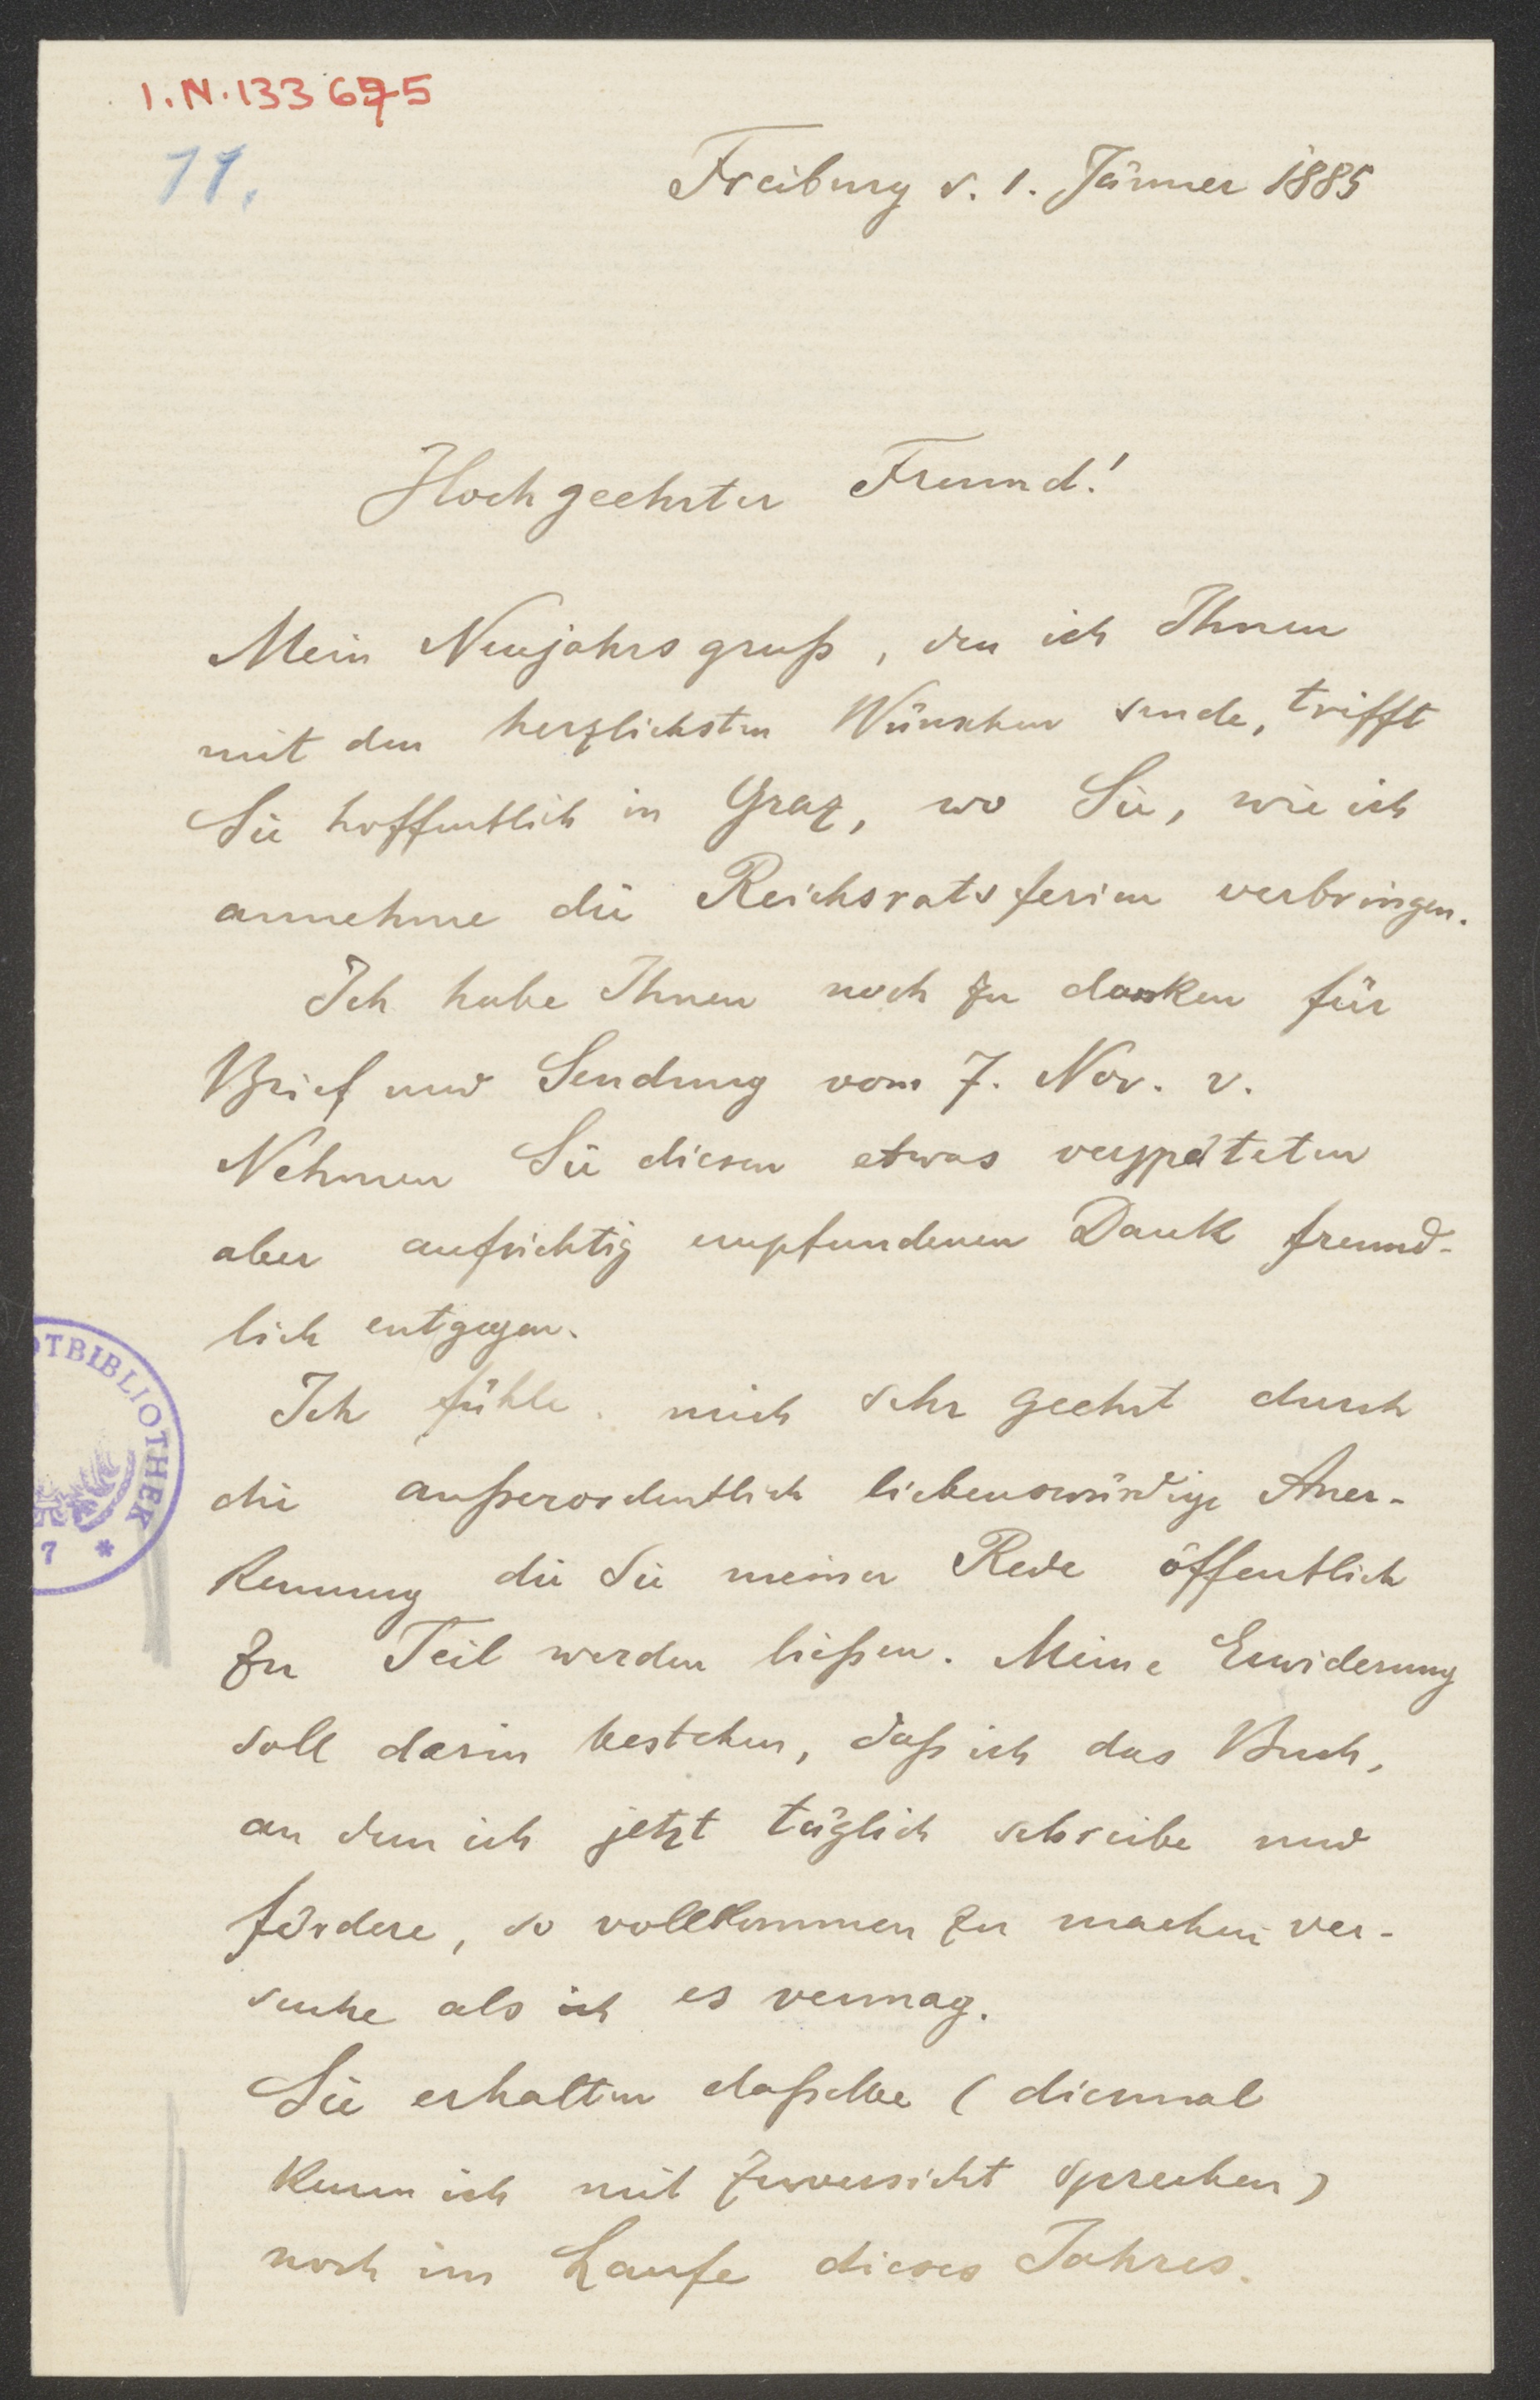 I.N. 133675
11.
Freiburg d. 1. Jänner 1885
Hochgeehrter Freund!
Mein Neujahrsgruß, den ich Ihnen
mit den herzlichsten Wünschen sende, trifft
Sie hoffentlich in Graz, wo Sie, wie ich
annehme die Reichsratsferien verbringen.
Ich habe Ihnen noch zu danken für
Brief und Sendung vom 7. Nov. v.
Nehmen Sie diesen etwas verspäteten
aber aufrichtig empfundenen Dank freund-
lich entgegen.
Ich fühle mich sehr geehrt durch
die außerordentlich liebenswürdige Aner-
kennung die Sie meiner Rede öffentlich
zu Teil werden ließen. Meine Erwiderung
soll darin bestehen, daß ich das Buch,
an dem ich jetzt täglich schreibe und
fördere, so vollkommen zu machen ver-
suche als ich es vermag.
Sie erhalten daßelbe (diesmal
kann ich mit Zuversicht sprechen)
noch im Laufe dieses Jahres.
TBIBLIOTHEK
7 *